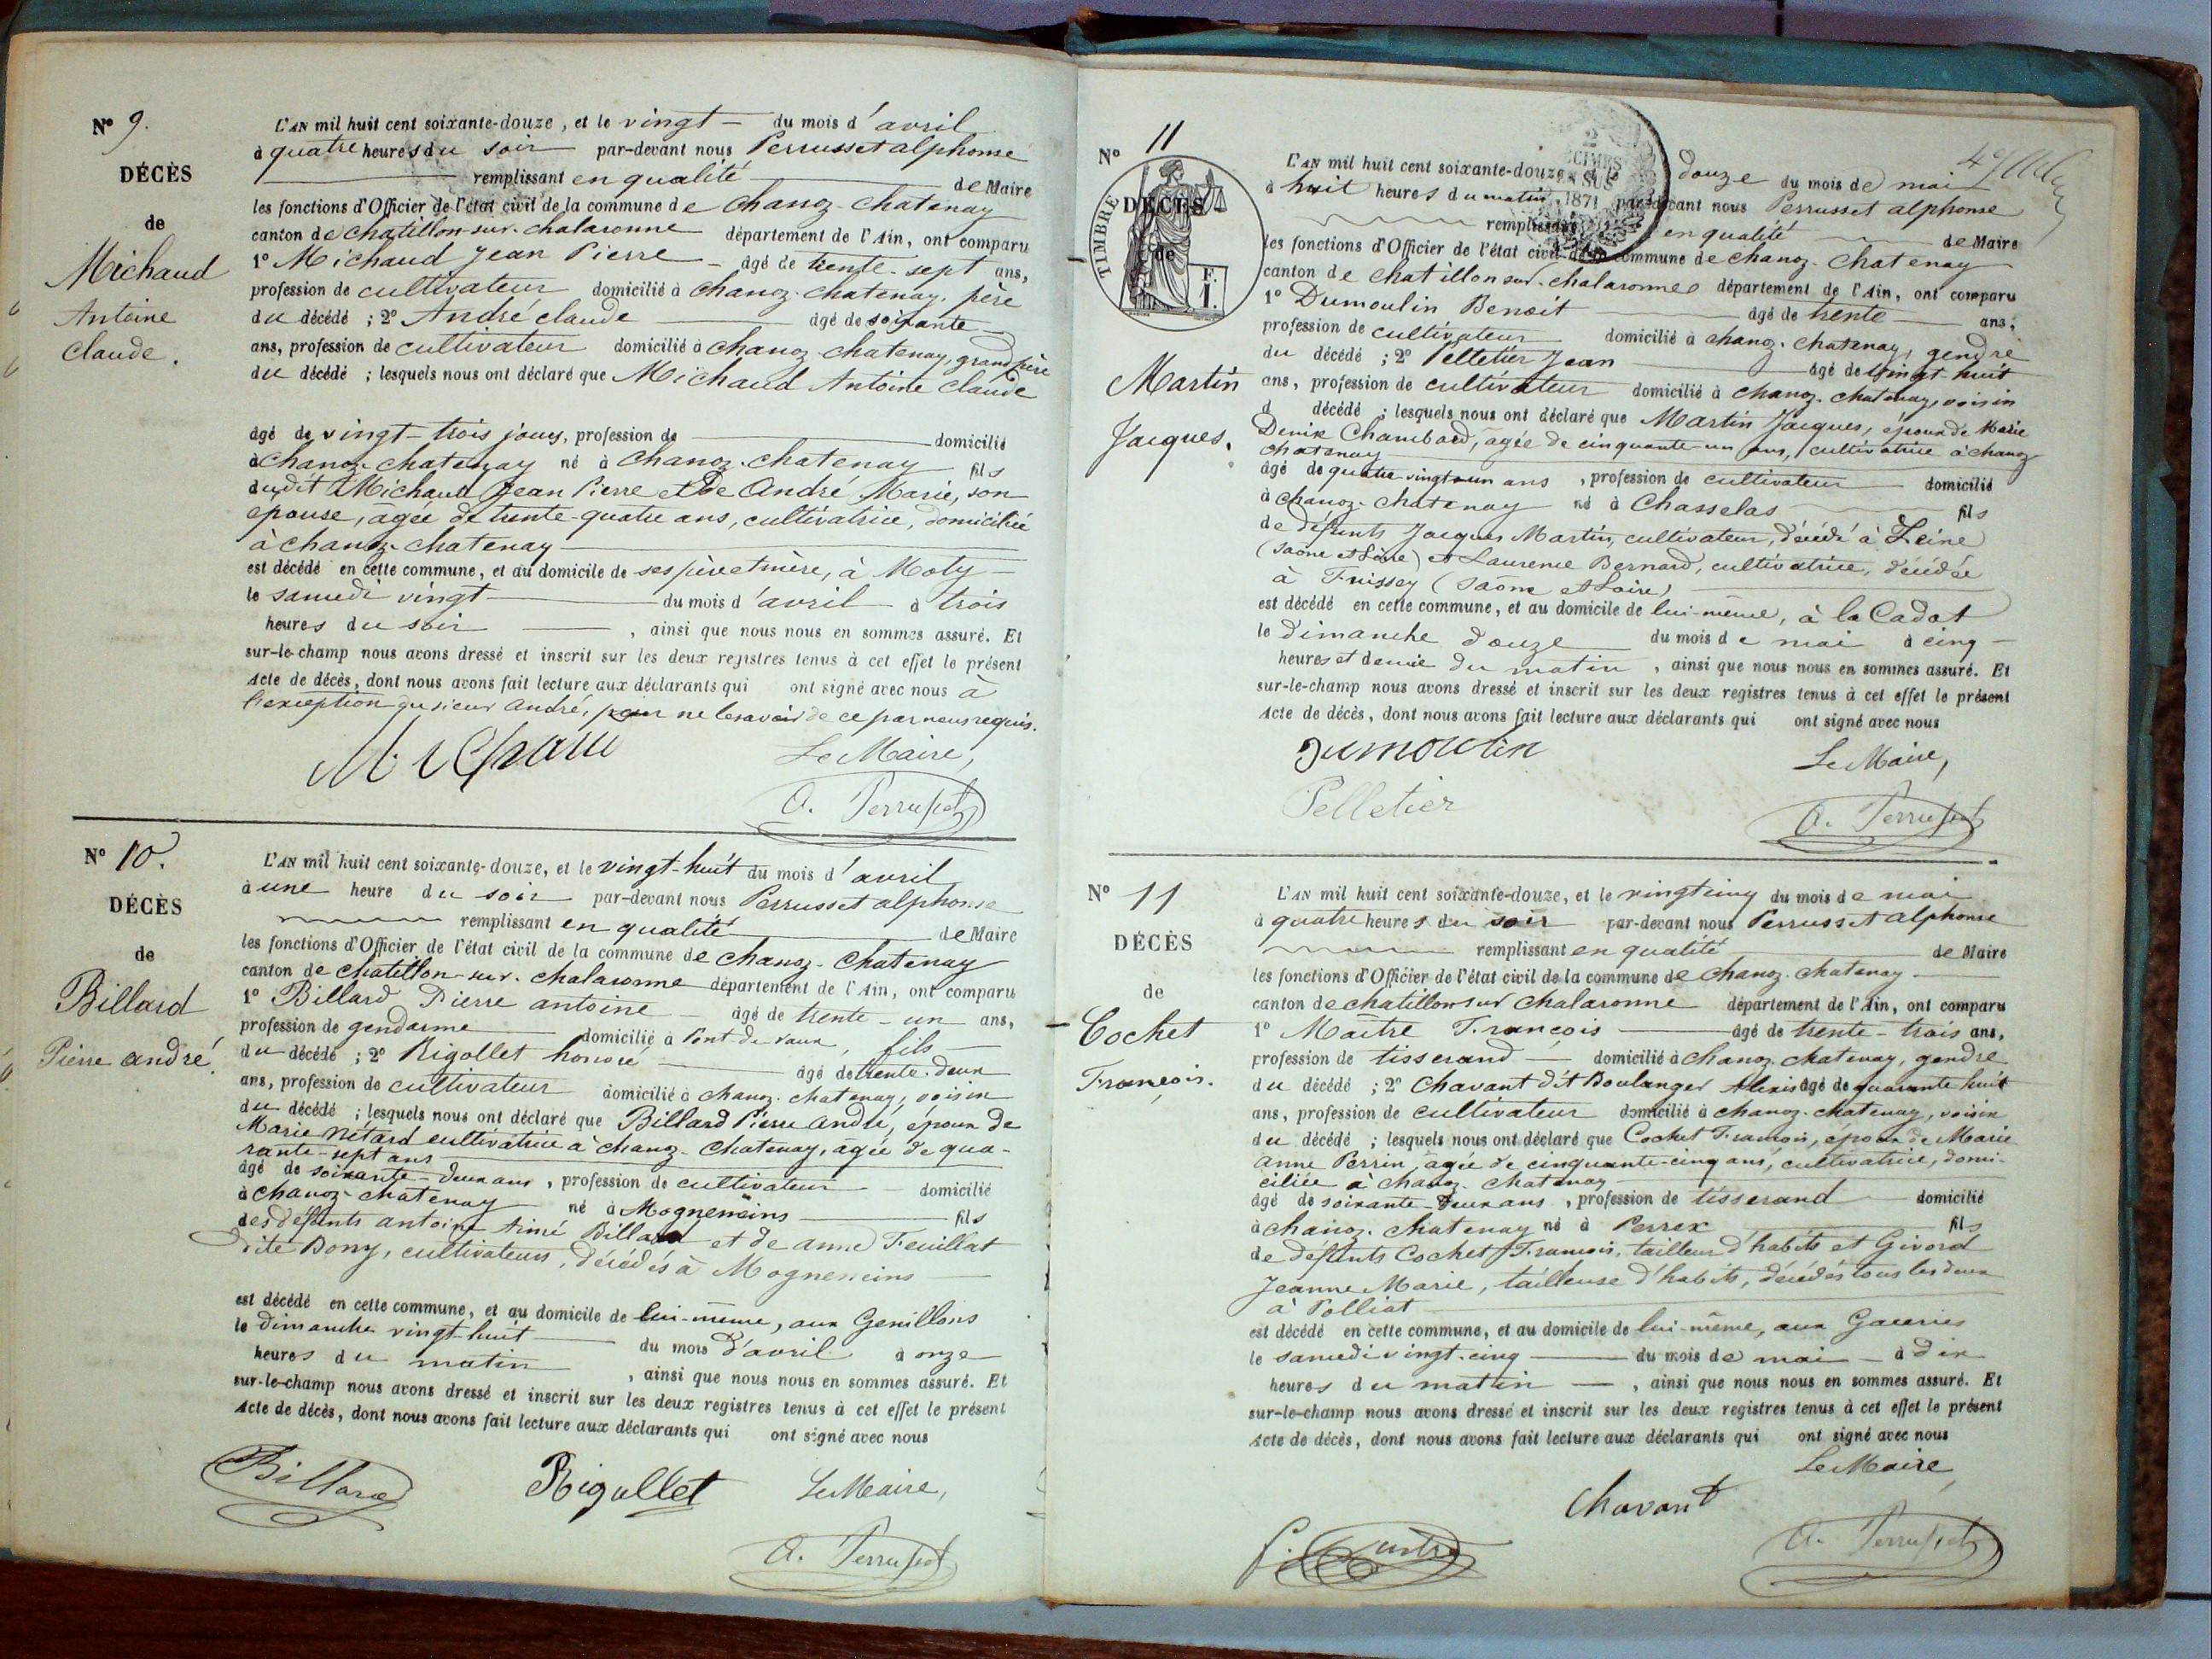 N° 9.
DÉCÈS
de
Michaud
Antoine
Claude.
L'AN mil huit cent soixante-douze, et le vingt — du mois d'avril
à quatre heures du soir par-devant nous Perrusset alphonse
remplissant en qualité de Maire
les fonctions d'Officier de l'état civil de la commune de Chanoz-Chatenay
canton de Chatillon-sur-Chalaronne département de l'Ain, ont comparu
1° Michaud Jean Pierre — âgé de trente-sept ans,
profession de cultivateur domicilié à Chanoz-Chatenay, père
du décédé ; 2° André Claude âgé de soixante
ans, profession de cultivateur domicilié à Chanoz-Chatenay, grand père
du décédé ; lesquels nous ont déclaré que Michaud Antoine Claude
âgé de vingt-trois jours, profession de domicilié
à Chanoz-Chatenay né à Chanoz-Chatenay fils
dudit Michaud Jean Pierre et de André Marie, son
épouse, âgée de trente-quatre ans, cultivatrice, domiciliée
à Chanoz-Chatenay
est décédé en cette commune, et au domicile de ses père et mère, à Moty
le samedi vingt du mois d'avril à trois
heures du soir , ainsi que nous nous en sommes assuré. Et
sur-le-champ nous avons dressé et inscrit sur les deux registres tenus à cet effet le présent
Acte de décès, dont nous avons fait lecture aux déclarants qui ont signé avec nous à
l'exception du sieur André, pour ne le savoir de ce par nous requis.
Michaud
Le Maire,
A. Perrusset
N° 10.
DÉCÈS
de
Billard
Pierre andré.
L'AN mil huit cent soixante-douze, et le vingt-huit du mois d'avril
à une heure du soir par-devant nous Perrusset alphonse
remplissant en qualité de Maire
les fonctions d'Officier de l'état civil de la commune de Chanoz-Chatenay
canton de Chatillon-sur-Chalaronne département de l'Ain, ont comparu
1° Billard Pierre antoine — âgé de trente-un ans,
profession de gendarme domicilié à Pont de Vaux, fils
du décédé ; 2° Rigollet honoré âgé de trente-deux
ans, profession de cultivateur domicilié à Chanoz-Chatenay, voisin
du décédé ; lesquels nous ont déclaré que Billard Pierre André, époux de
Marie Nétard cultivatrice à Chanoz-Chatenay, âgée de qua-
rante-sept ans
âgé de soixante-deux ans, profession de cultivateur domicilié
à Chanoz-Chatenay né à Mogneneins fils
des défunts antoine Aimé Billard et de anne Feuillat
dite Bony, cultivateurs, décédés à Mogneneins
est décédé en cette commune, et au domicile de lui-même, aux Genillons
le dimanche vingt-huit du mois d'avril à onze
heures du matin , ainsi que nous nous en sommes assuré. Et
sur-le-champ nous avons dressé et inscrit sur les deux registres tenus à cet effet le présent
Acte de décès, dont nous avons fait lecture aux déclarants qui ont signé avec nous
Billard
Rigollet
Le Maire,
A. Perrusset
N° 11
TIMBRE
DÉCÈS
de
F.
1.
2 DÉCIMES
EN SUS
1871
Martin
Jacques.
L'AN mil huit cent soixante-douze, et le douze du mois de mai
à huit heures du matin par-devant nous Perrusset alphonse
remplissant en qualité de Maire
les fonctions d'Officier de l'état civil de la commune de Chanoz-Chatenay
canton de Chatillon sur Chalaronne département de l'Ain, ont comparu
1° Dumoulin Benoit âgé de trente ans,
profession de cultivateur domicilié à Chanoz-Chatenay, gendre
du décédé ; 2° Pelletier Jean âgé de vingt-huit
ans, profession de cultivateur domicilié à Chanoz-Chatenay, voisin
d décédé ; lesquels nous ont déclaré que Martin Jacques, époux de Marie
Denise Chambard, âgée de cinquante-un ans, cultivatrice à Chanoz
Chatenay
âgé de quatre vingt-un ans, profession de cultivateur domicilié
à Chanoz-Chatenay né à Chasselas fils
de défunts Jacques Martin, cultivateur, décédé à Leine
(Saône et Loire) et Laurence Bernard, cultivatrice, décédée
à Fuissey (Saône et Loire)
est décédé en cette commune, et au domicile de lui-même, à la Cadat
le dimanche douze du mois de mai à cinq
heures et demie du matin , ainsi que nous nous en sommes assuré. Et
sur-le-champ nous avons dressé et inscrit sur les deux registres tenus à cet effet le présent
Acte de décès, dont nous avons fait lecture aux déclarants qui ont signé avec nous
Dumoulin
Le Maire,
Pelletier
A. Perrusset
N° 11
DÉCÈS
de
Cochet
François.
L'AN mil huit cent soixante-douze, et le vingt cinq du mois de mai
à quatre heures du soir par-devant nous Perrusset Alphonse
remplissant en qualité de Maire
les fonctions d'Officier de l'état civil de la commune de Chanoz-Chatenay
canton de Chatillon sur Chalaronne département de l'Ain, ont comparu
1° Maître François âgé de trente-trois ans,
profession de tisserand domicilié à Chanoz-Chatenay, gendre
du décédé ; 2° Chavant dit Boulanger Alexis âgé de quarante huit
ans, profession de cultivateur domicilié à Chanoz-Chatenay, voisin
du décédé ; lesquels nous ont déclaré que Cochet François, époux de Marie
Anne Perrin, âgée de cinquante-cinq ans, cultivatrice, domi-
ciliée à Chanoz-Chatenay
âgé de soixante-deux ans, profession de tisserand domicilié
à Chanoz-Chatenay né à Perrex fils
de défunts Cochet François, tailleur d'habits et Givord
Jeanne Marie, tailleuse d'habits, décédés tous les deux
à Polliat
est décédé en cette commune, et au domicile de lui-même, aux
le samedi vingt-cinq du mois de mai — à dix
heures du matin — , ainsi que nous nous en sommes assuré. Et
sur-le-champ nous avons dressé et inscrit sur les deux registres tenus à cet effet le présent
Acte de décès, dont nous avons fait lecture aux déclarants qui ont signé avec nous
Le Maire,
Chavant
A. Perrusset